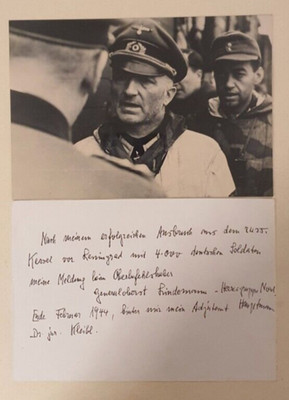 Nach meinem erfolgreichen Ausbruch aus dem
Kessel vor Leningrad mit 4.000 deutschen Soldaten
meine Meldung beim Oberbefehlshaber
Generaloberst Lindemann - Heeresgruppe Nord
Ende Februar 1944, hinter mir mein Adjutant Hauptmann
Dr jur.